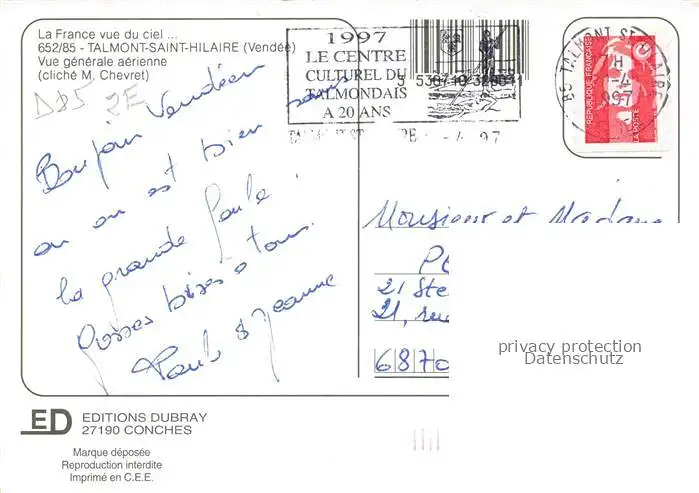 La France vue du ciel ...
652/85 - TALMONT-SAINT-HILAIRE (Vendée)
Vue générale aérienne
(cliché M. Chevret)
1997
LE CENTRE
CULTUREL DU
TALMONDAIS
A 20 ANS
-4-97
85 TALMONT ST HILAIRE
7H
-4
1997
REPUBLIQUE FRANÇAISE
LA POSTE
Bonjour Vendéen
ou on est bien sans
la grande foule!
Grosses bises à tous.
Paul & Jeanne
Monsieur et Madame
21 Ste
21, rue
6870
privacy protection
Datenschutz
ED EDITIONS DUBRAY
27190 CONCHES
Marque déposée
Reproduction interdite
Imprimé en C.E.E.